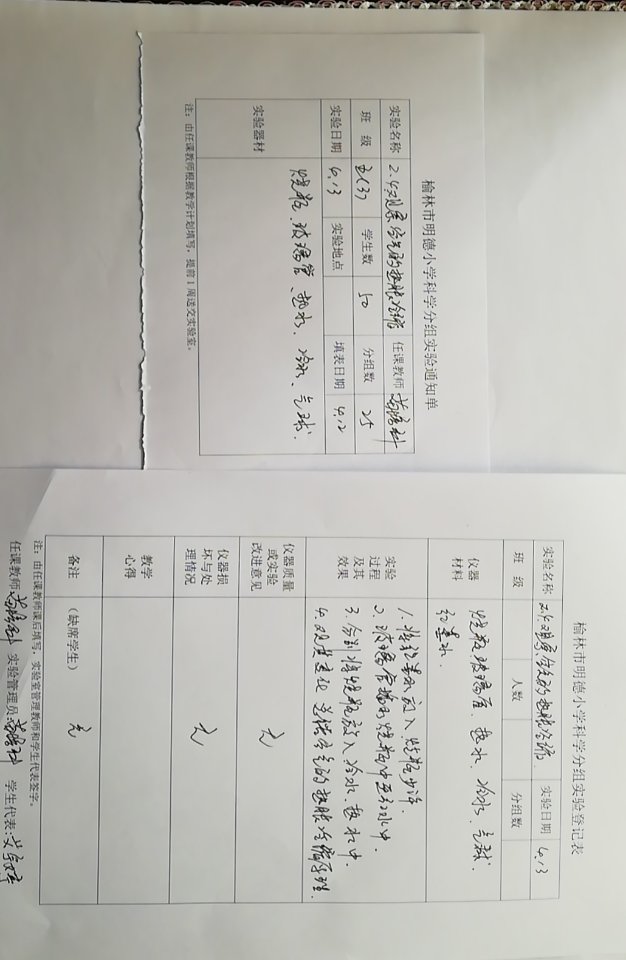 榆林市明德小学科学分组实验通知单
实验名称 2.4观察空气的热胀冷缩 任课教师
班 级 五(3) 学生数 50 分组数 25
实验日期 4.13 实验地点 填表日期 4.12
实验器材 烧瓶、玻璃管、热水、冷水、气球.
注：由任课教师根据教学计划填写，提前1周送交实验室。
榆林市明德小学科学分组实验登记表
实验名称 2.4观察空气的热胀冷缩 实验日期 4.13
班 级 人数 分组数
仪器材料 烧瓶 玻璃管 热水、冷水 气球.
红墨水.
实验过程及其效果
1. 将红墨水放入烧瓶少许.
2. 玻璃管插到烧瓶中至红水中.
3. 分别将烧瓶放入冷水、热水中.
4. 观察变化 总结空气的热胀冷缩原理.
仪器质量或实验改进意见 无
仪器损坏与处理情况 无
教学心得
备注 (缺席学生) 无
注：由任课教师课后填写，实验室管理教师和学生代表签字。
任课教师 实验管理员 学生代表: